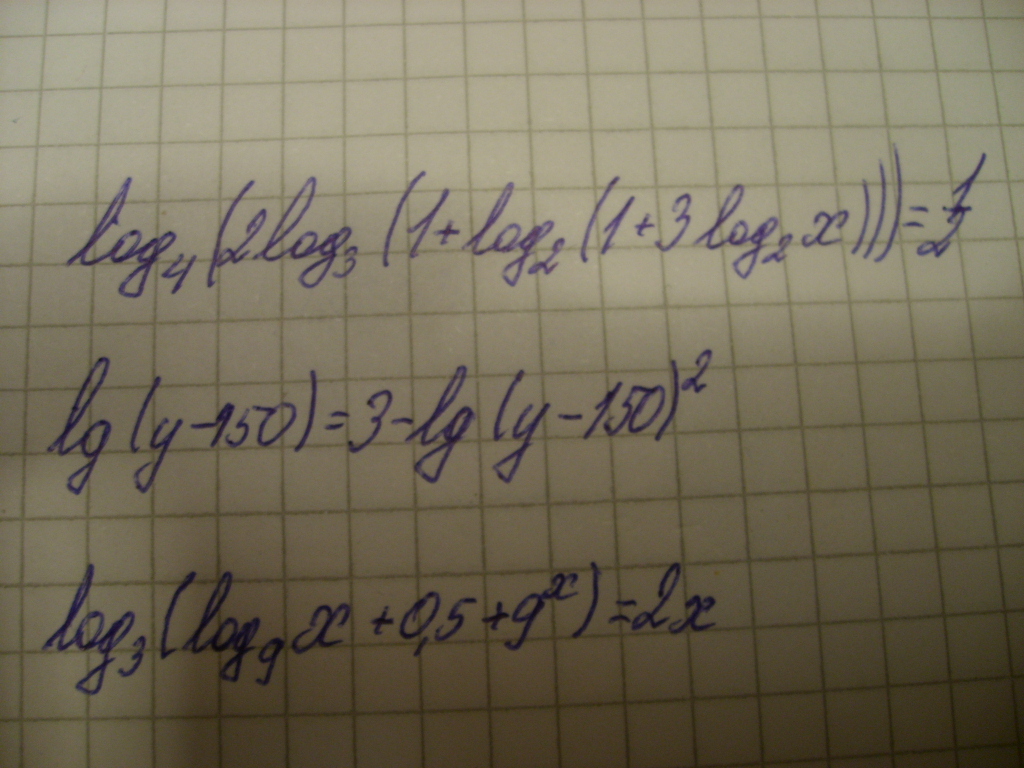 log₄(2log₃(1+log₂(1+3log₂x)))=1/2
lg(y-150)=3-lg(y-150)²
log₃(log₉x+0,5+9ˣ)=2x